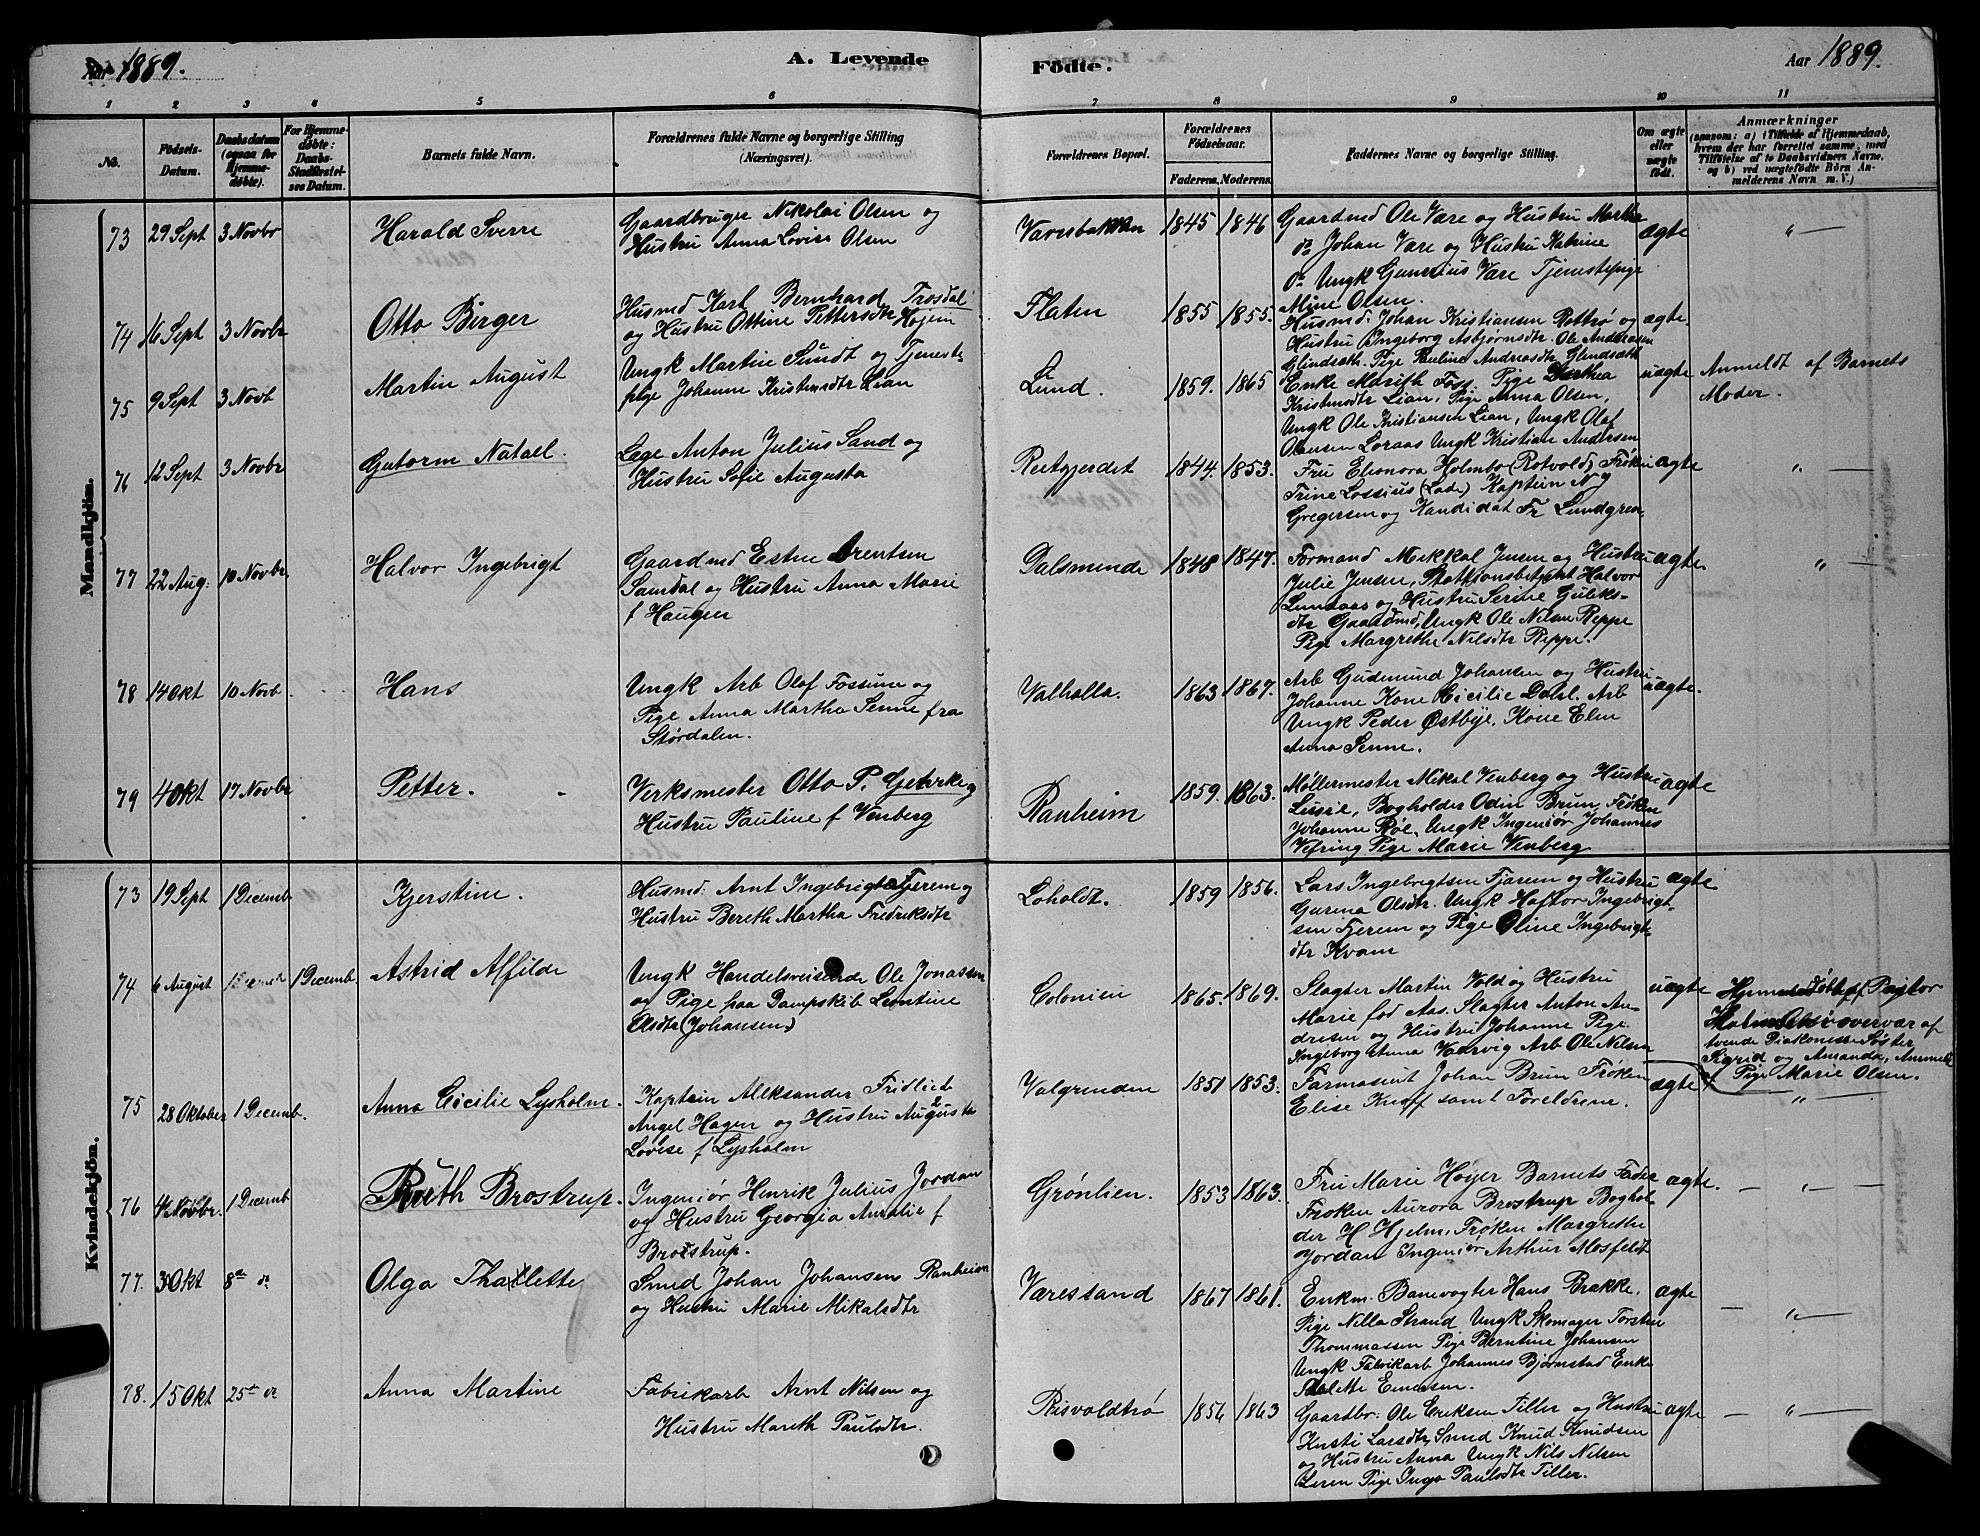 Aar 1889.
A. Levende
Födte.
Aar 1889.
1 2 3 4 5 6 7 8 9 10 11
No.
Födsels-Datum.
Daabsdatum (ogsaa for Hjemmedöbte).
For Hjemmedöbte: Daabs-Stadfæstelses Datum.
Barnets fulde Navn.
Forældrenes fulde Navne og borgerlige Stilling (Næringsvei).
Forældrenes Bopæl.
Forældrenes Födselsaar.
Faderens. Moderens.
Faddernes Navne og borgerlige Stilling.
Om ægte eller uægte födt.
Anmærkninger
(saasom: a) i Tilfælde af Hjemmedaab, hvem der har forrettet samme, med Tilföielse af to Daabsvidners Navne. og b) ved uægtefödte Börn Anmelderens Navn m. V.)
Mandkjön.
73 29 Sept 3 Novbr Harald Sverre
Gaardbruger Nikolai Olsen og
Hustru Anna Lovise Olsen
1845 1846
Gaardmd Ole Være og Hustru Martha
do Johan Være og Hustru Katrine
Do Ungk Gunerius Være Tjenestepige
Mine Olsen.
ægte "
74 16 Sept 3 Novbr Otto Birger
Husmd Karl Bernhard Trosdal
og Hustru Ottine Pettersdtr Hojem
Flaten 1855 1855.
Husmd. Johan Kristiansen Rottrø og
Hustru Ingeborg Asbjørnsdtr. Ole Andreasen
Glindsath. Pige Pauline Andreasdtr Glindsath
ægte.
75 9 Sept 3 Novb Martin August
Ungk Martin Sundt og Tjeneste
pige Johanne Kristensdtr Lian
Lund. 1859. 1865
Enke Marith Foss. Pige Dorthea
Kristensdtr Lian, Pige Anna Olsen,
Ungk Ole Kristiansen Lian, Ungk Olaf
Olausen Loraas Ungk Kristian Andersen
uægte
Anmeldt af Barnets
Moder.
76 12 Sept 3 Novbr Gutorm Natael.
Læge Anton Julius Sand og
Hustru Sofie Augusta
Reitgjerdet 1844. 1853.
Fru Eleonora Holmbo (Rotvold) Frøken
Trine Lossius (Lade) Kaptein Ny
Gregersen og Kandidat Fr Lundgren
ægte "
77 22 Aug. 10 Novbr. Halvor Ingebrigt
Gaardmd Esten Arentsen
Samdal og Hustru Anna Marie
f Haugen
Dalsminde 1848 1847.
Formand Mikkal Jensen og Hustru
Julie Jensen, Stationsbetjent Halvor
Lundaas og Hustru Serine Guliks-
dtr Gaardmd, Ungk Ole Nilsen Reppe
Pige Margrethe Nilsdtr Reppe.
ægte. "
78 14 Okt 10 Novb Hans
Ungk Arb Olaf Fossum og
Pige Anna Martha Senne fra
Stördalen.
Valhalla. 1863 1867.
Arb Gudmund Johansen og Hustru
Johanne Kone Cicilie Dahl. Arb
Ungk Peder Østbye. Kone Elen
Anna Senne.
uægte.
79 4 Okt 17 Novbr Petter.
Verksmester Otto P. Gjetvik og
Hustru Pauline f Venberg
Ranheim 1859. 1863.
Møllermester Mikal Venberg og Hustru
Lissie, Bogholder Odin Brun, Frøken
Johanne Röe, Ungk Ingeniør Johannes
Vefring Pige Marie Venberg
ægte
Kvindekjön.
73 19 Sept 1 Decemb Kjerstine.
Husmd. Arnt Ingebrigtsen Fjerem og
Hustru Bereth Martha Fredriksdtr
Loholdt. 1859 1856.
Lars Ingebrigtsen Fjærem og Hustru
Gurina Olsdtr. Ungk Haftor Ingebrigt-
sen Fjerem og Pige Oline Ingebrigt-
dtr Kvam
ægte
74 6 August 1 Decemb. Astrid Alfilde
Ungk Handelsreisende Ole Jonassen
og Pige paa Dampskib Leontine
Olsdtr (Johansen)
Colonien 1865. 1869.
Slagter Martin Vold og Hustru
Marie fød Aas. Slagter Anton An-
dresen og Hustru Johanne Pige
Ingeborg Anna Vadsvig Arb Ole Nilsen
uægte
Hjemmedöbt af Pastor
i overvær af
tvende Diakonisse Söster
Sigrid og Amanda, Anmeldt
af Pige Marie Olsen.
75 28 Oktober 1 Decemb. Anna Cicilie Lysholm.
Kaptein Aleksander Fridlieb
Angel Hagen og Hustru Augusta
Lovise f Lysholm
Valgrinden 1851 1853.
Farmaseut Johan Brun Frøken
Elise Knoff samt Foreldrene.
ægte "
76 4 Novbr. 1 Decemb Ruth Brostrup.
Ingeniör Henrik Julius Jordan
og Hustru Georgia Amalie f
Brostrup.
Grønlien. 1853 1863.
Fru Marie Høyer Barnets Fader
Frøken Aurora Brostrup Boghol-
der H Hjelm, Frøken Margrethe
Jordan Ingeniør Arthur Mosfeldt
ægte. "
77. 3 Okt 8de do Olga Thalette
Smed Johan Johansen Ranheim
og Hustru Marie Mikalsdtr
Værestrand 1867 1861.
Enkm. Banevogter Hans Brakke.
Pige Nilla Strand Ungk Skomager Torsten
Thommassen Pige Berntine Johansen
Ungk Fabrikarb Johannes Bjørnstad Enke
Talette Einersen.
ægte "
78. 15 Okt 25de do Anna Martine
Fabrikarb Arnt Nilsen og
Hustru Mareth Paulsdtr.
Risvoldtrø 1856 1863
Gaardbr. Ole Eriksen Tiller og Hustru
Kirsti Larsdtr, Smed Knud Knudsen
og Hustru Anna Ungk Nils Nilsen
Leren Pige Inga Paulsdtr Tiller.
ægte "